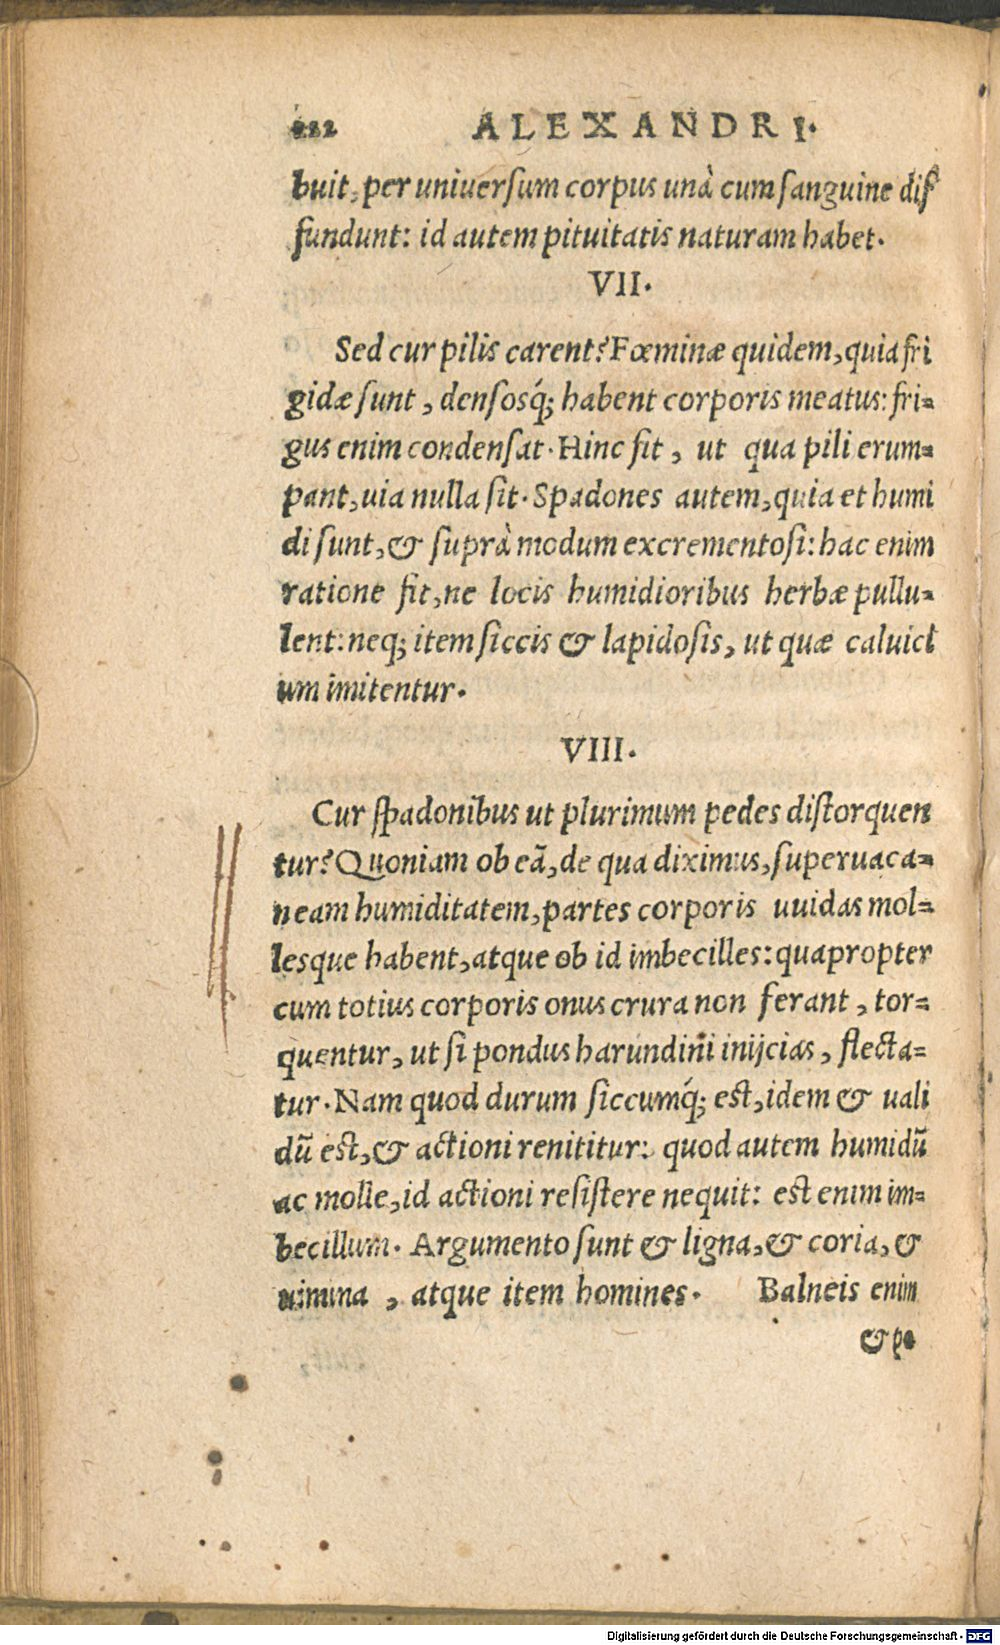 222 ALEXANDRI.
buit, per uniuersum corpus unà cum sanguine dif
fundunt: id autem pituitatis naturam habet.
VII.
Sed cur pilis carent? Fœminæ quidem, quia fri
gidæ sunt, densosq́; habent corporis meatus: fri-
gus enim condensat. Hinc fit, ut qua pili erum-
pant, uia nulla sit. Spadones autem, quia et humi
di sunt, & suprà modum excrementosi: hac enim
ratione fit, ne locis humidioribus herbæ pullu-
lent: neq; item siccis & lapidosis, ut quæ caluici
um imitentur.
VIII.
Cur spadonibus ut plurimum pedes distorquen
tur? Quoniam ob eã, de qua diximus, superuaca-
neam humiditatem, partes corporis uuidas mol-
lesque habent, atque ob id imbecilles: quapropter
cum totius corporis onus crura non ferant, tor-
quentur, ut si pondus harundini inijcias, flecta-
tur. Nam quod durum siccumq́; est, idem & uali
dũ est, & actioni renititur: quod autem humidũ
ac molle, id actioni resistere nequit: est enim im-
becillum. Argumento sunt & ligna, & coria, &
uimina, atque item homines. Balneis enim
& po
Digitalisierung gefördert durch die Deutsche Forschungsgemeinschaft - DFG